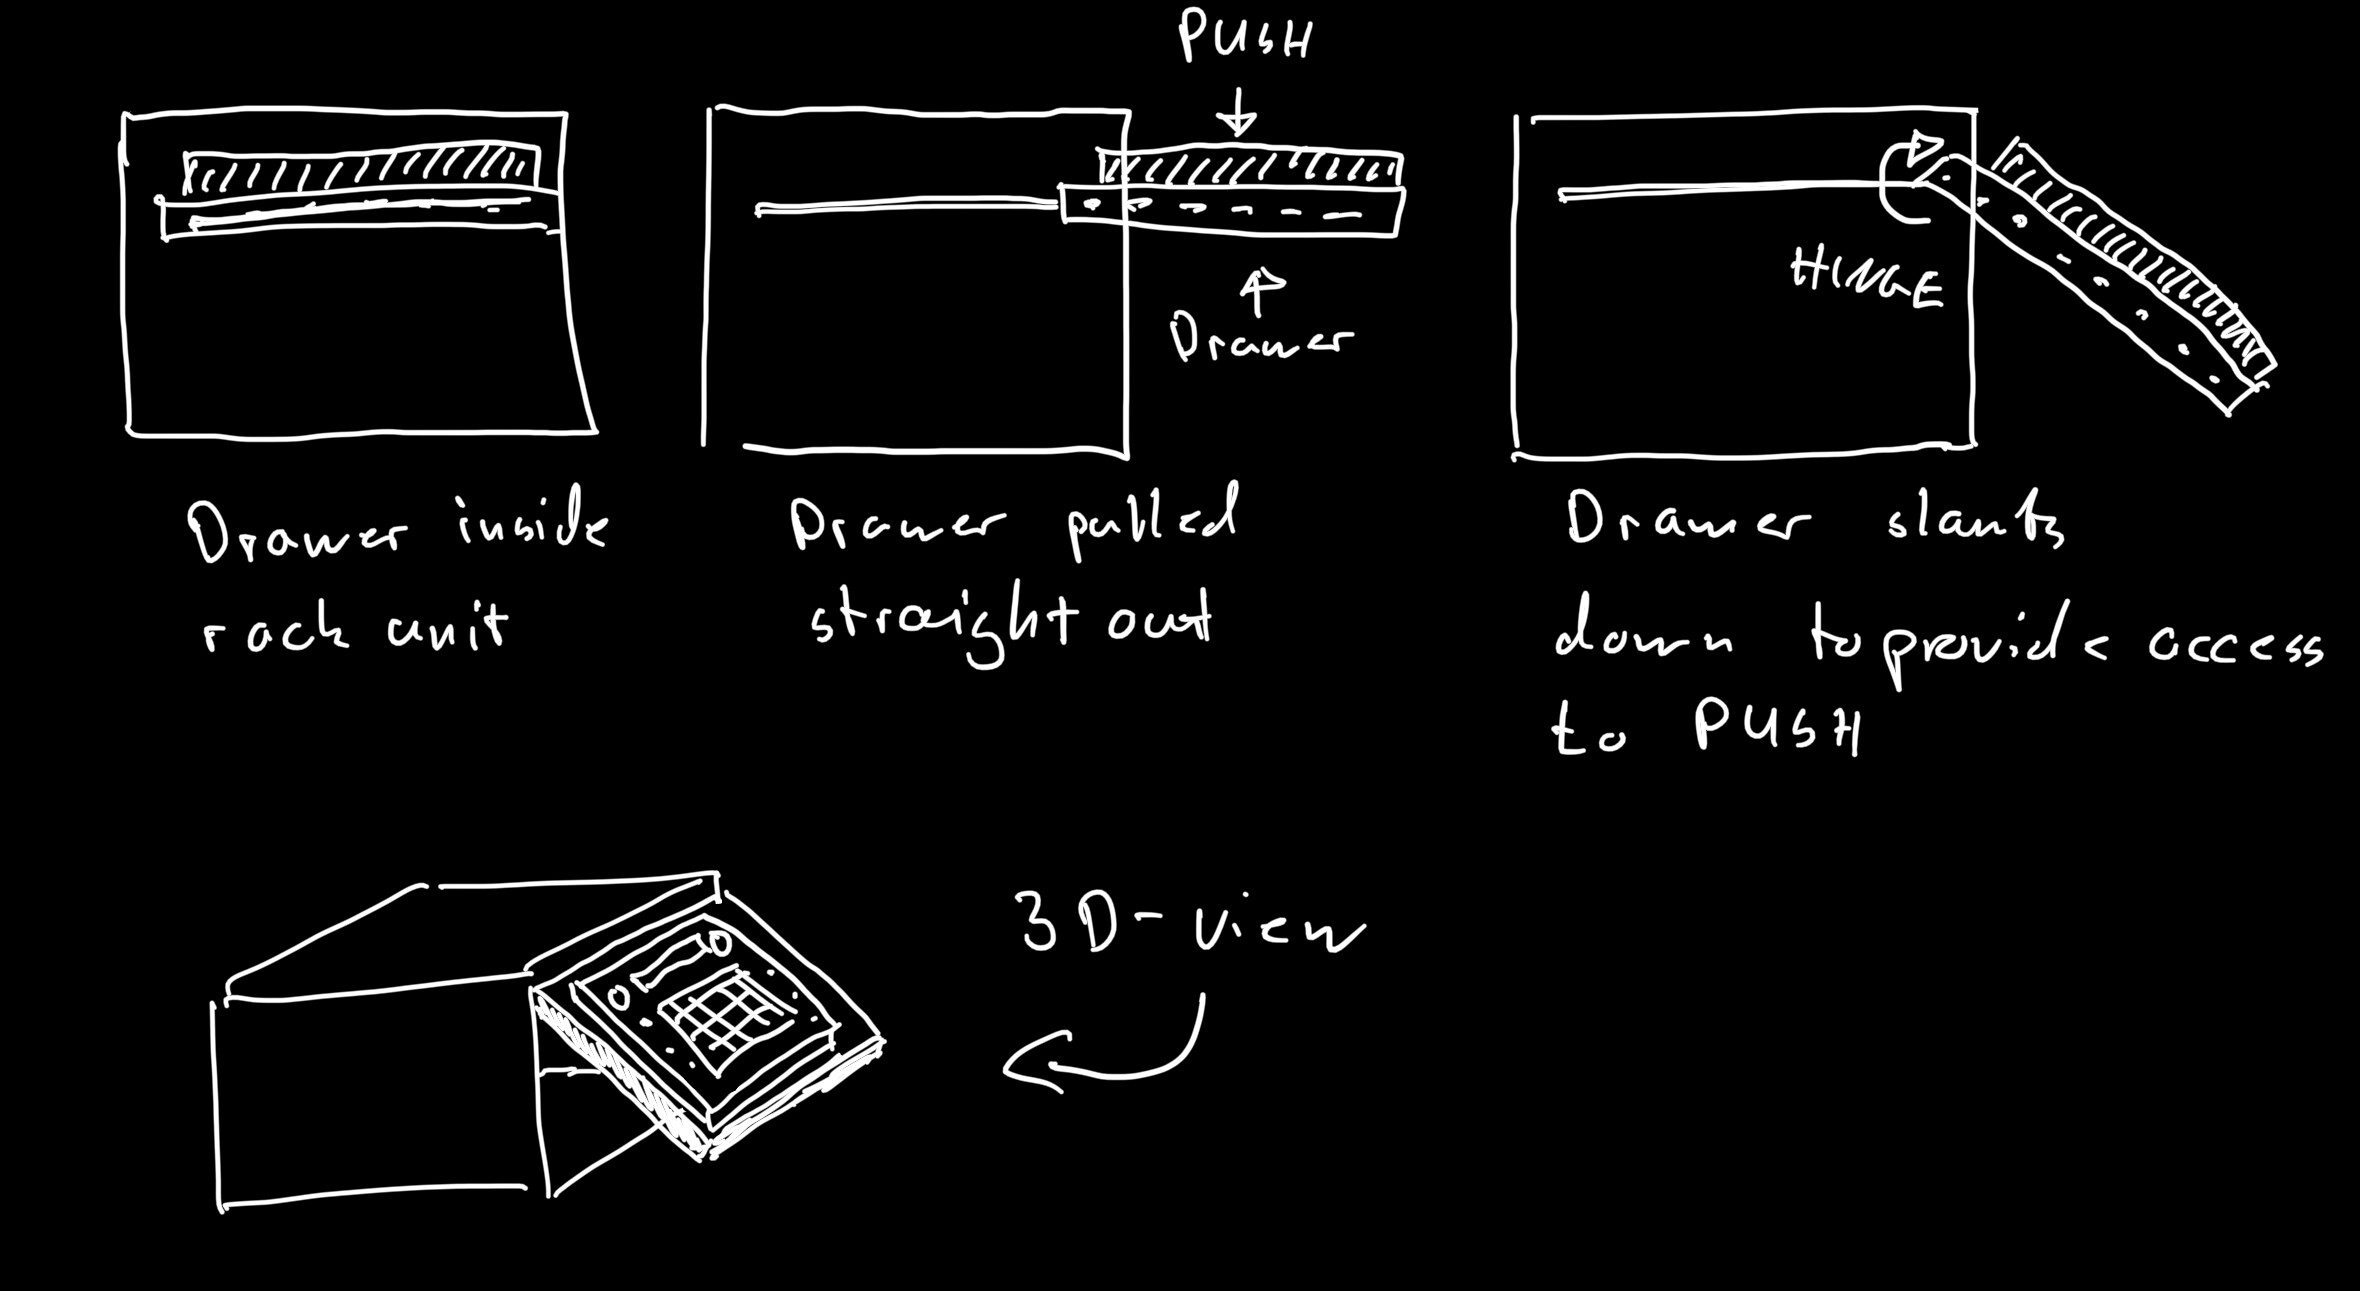 PUSH
Drawer
HINGE
Drawer inside
rack unit
Drawer pulled
straight out
Drawer slants
down to provide access
to PUSH
3D-view